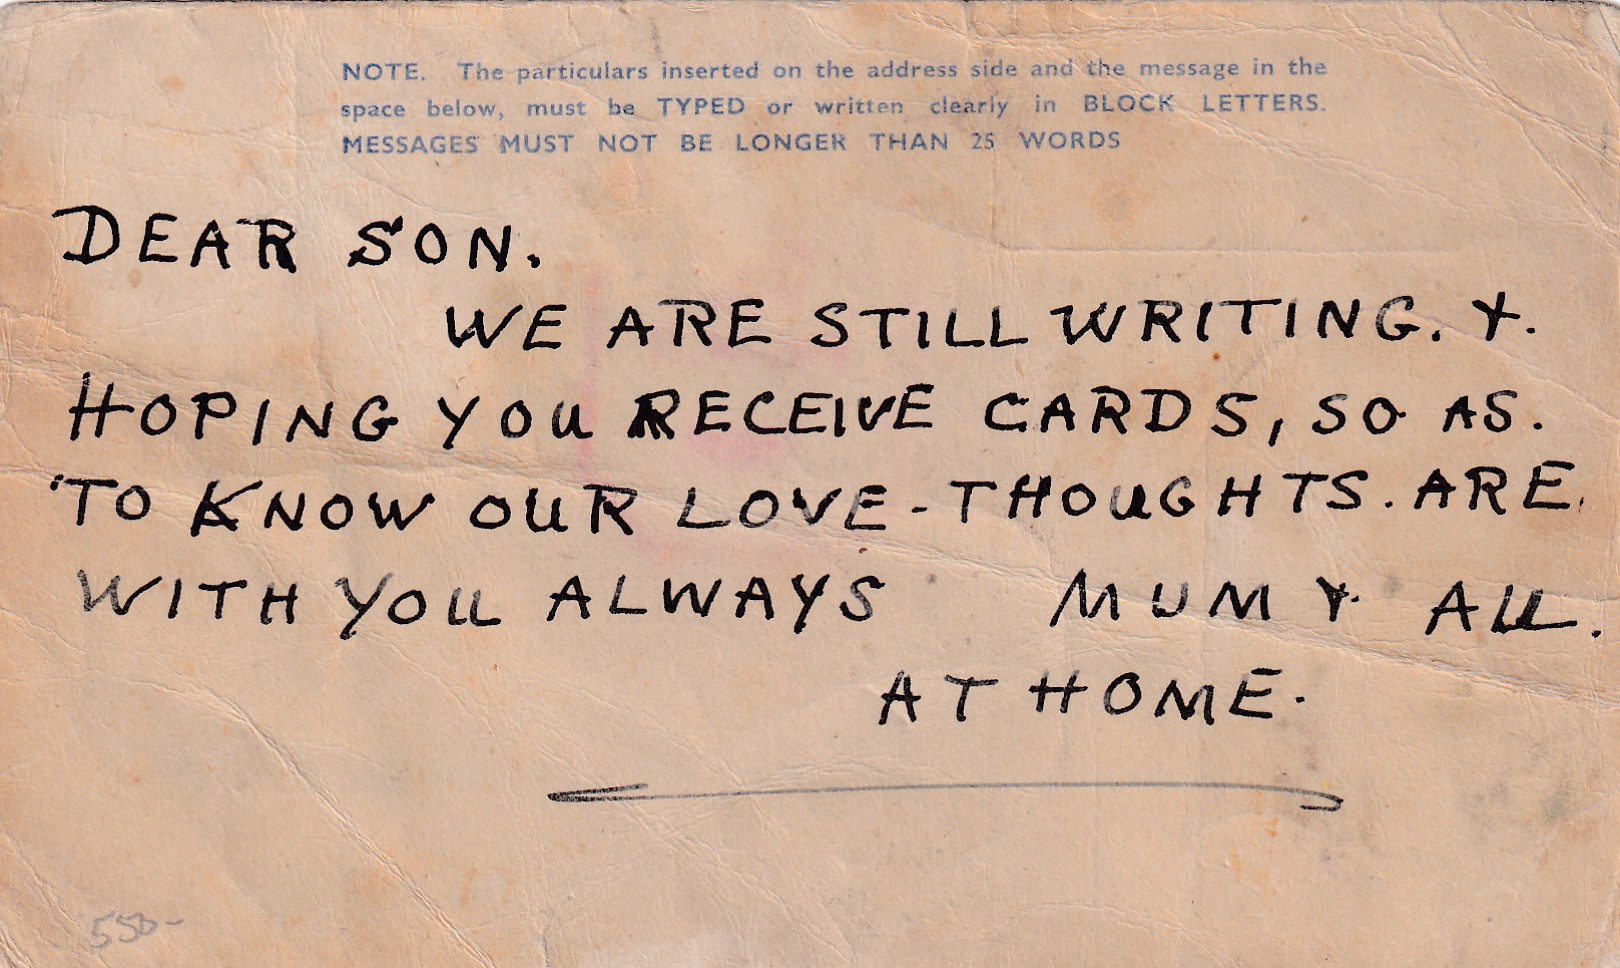 NOTE. The particulars inserted on the address side and the message in the
space below, must be TYPED or written clearly in BLOCK LETTERS.
MESSAGES MUST NOT BE LONGER THAN 25 WORDS
DEAR SON.
WE ARE STILL WRITING. &.
HOPING YOU RECEIVE CARDS, SO AS.
TO KNOW OUR LOVE - THOUGHTS. ARE.
WITH YOU ALWAYS MUM & ALL.
AT HOME.
550-